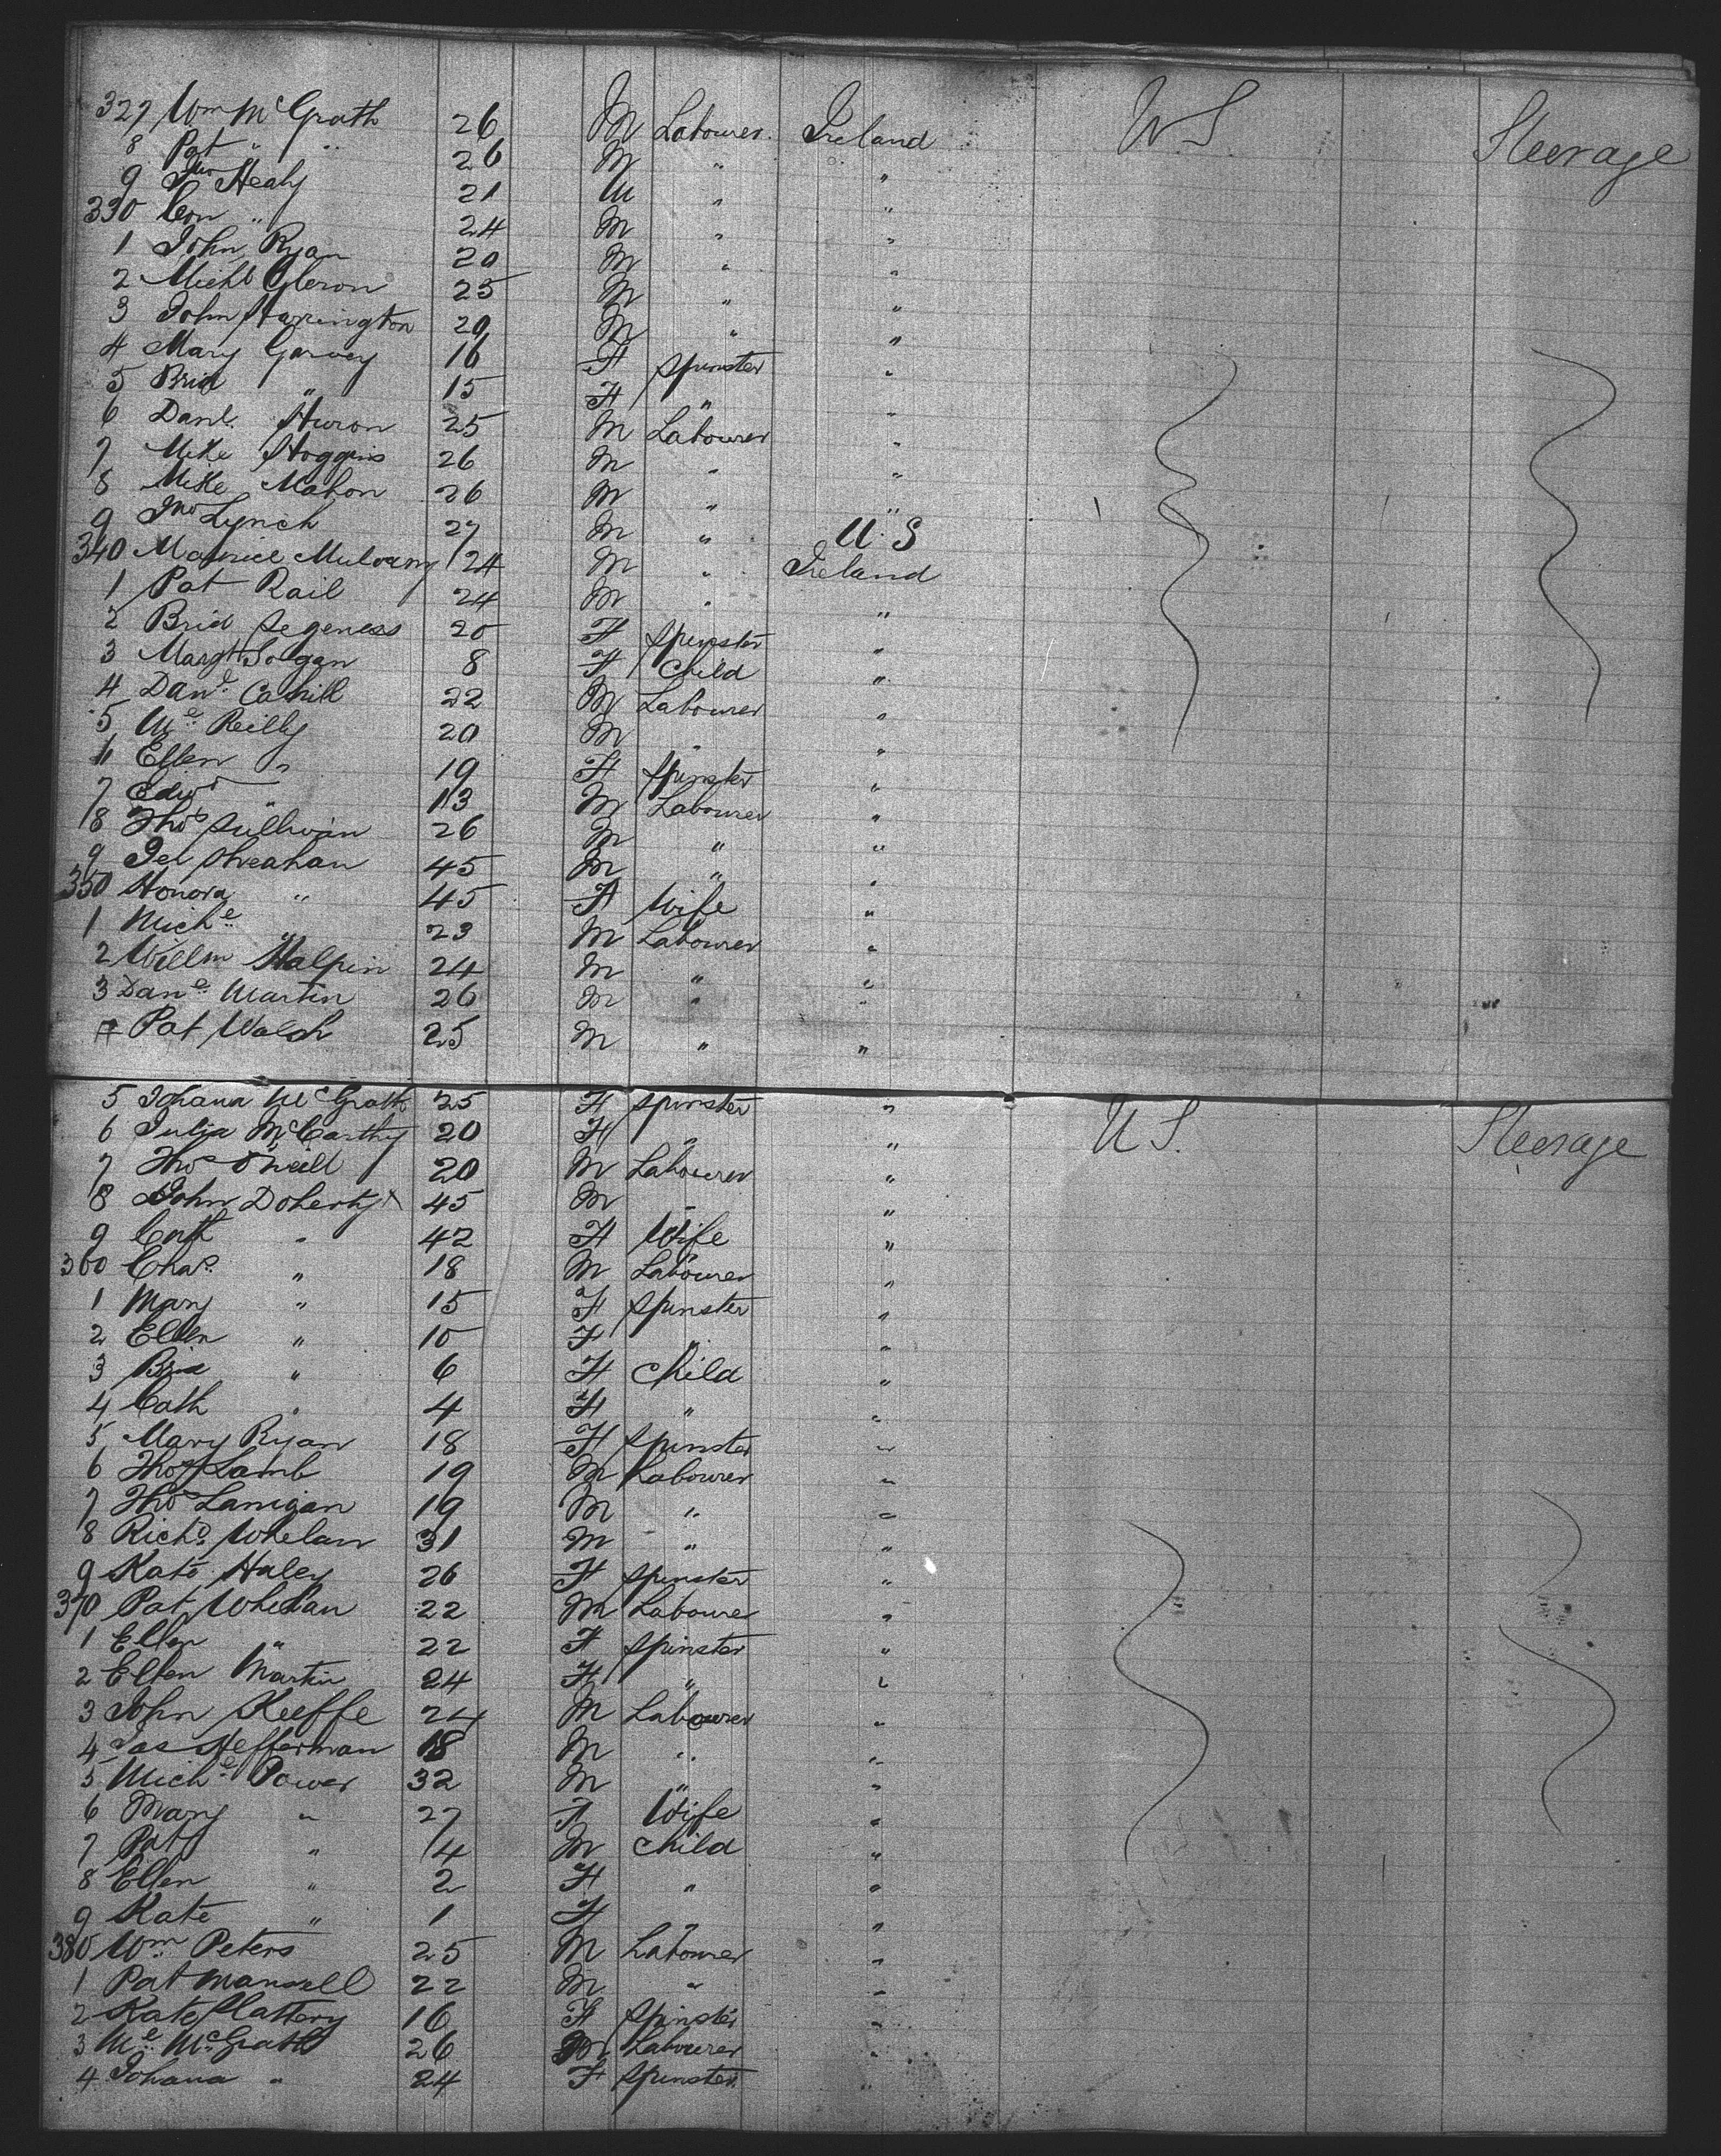 327 Wm McGrath 26 M Labourer Ireland U S Steerage
8 Pat " 26 M " "
9 Jno Healy 21 M " "
330 Con " 24 M " "
1 John Ryan 20 M " "
2 Michl Gleron 25 M " "
3 John Harrington 29 M " "
4 Mary Garvey 16 F Spinster "
5 Brid " 15 F " "
6 Danl. Huron 25 M Labourer "
7 Mike Hoggins 26 M " "
8 Mike Mahon 26 M " "
9 Jno Lynch 27 M " U.S
340 Maurice Mulvany 24 M " Ireland
1 Pat Rail 24 M " "
2 Brid Segeness 20 F Spinster "
3 Margt Hogan 8 F Child "
4 Danl Cahill 22 M Labourer "
5 Ml Reilly 20 M " "
6 Ellen " 19 F Spinster "
7 Edwd " 13 M Labourer "
8 Thos Sullivan 26 M " "
9 Jer Sheahan 45 M " "
350 Honora " 45 F Wife "
1 Michl " 23 M Labourer "
2 Willm Halpin 24 M " "
3 Danl Martin 26 M " "
4 Pat Walsh 25 M " "
5 Johana McGrath 25 F Spinster " U S. Steerage
6 Julia McCarthy 20 F " "
7 Thos O'Neill 20 M Labourer "
8 John Doherty 45 M " "
9 Cath " 42 F Wife "
360 Chas " 18 M Labourer "
1 Mary " 15 F Spinster "
2 Ellen " 10 F " "
3 Brid " 6 F Child "
4 Cath " 4 F " "
5 Mary Ryan 18 F Spinster "
6 Thos Lamb 19 M Labourer "
7 Thos Lanigan 19 M " "
8 Richd Whelan 31 M " "
9 Kate Haley 26 F Spinster "
370 Pat Whelan 22 M Labourer "
1 Ellen " 22 F Spinster "
2 Ellen Martin 24 F " "
3 John Keeffe 24 M Labourer "
4 Jas Hefferman 18 M " "
5 Michl Power 32 M " "
6 Mary " 27 F Wife "
7 Pat " 4 M Child "
8 Ellen " 2 F " "
9 Kate " 1 F " "
380 Wm Peters 25 M Labourer "
1 Pat Mansell 22 M " "
2 Kate Slattery 16 F Spinster "
3 Ml McGrath 26 M Labourer "
4 Johana " 24 F Spinster "